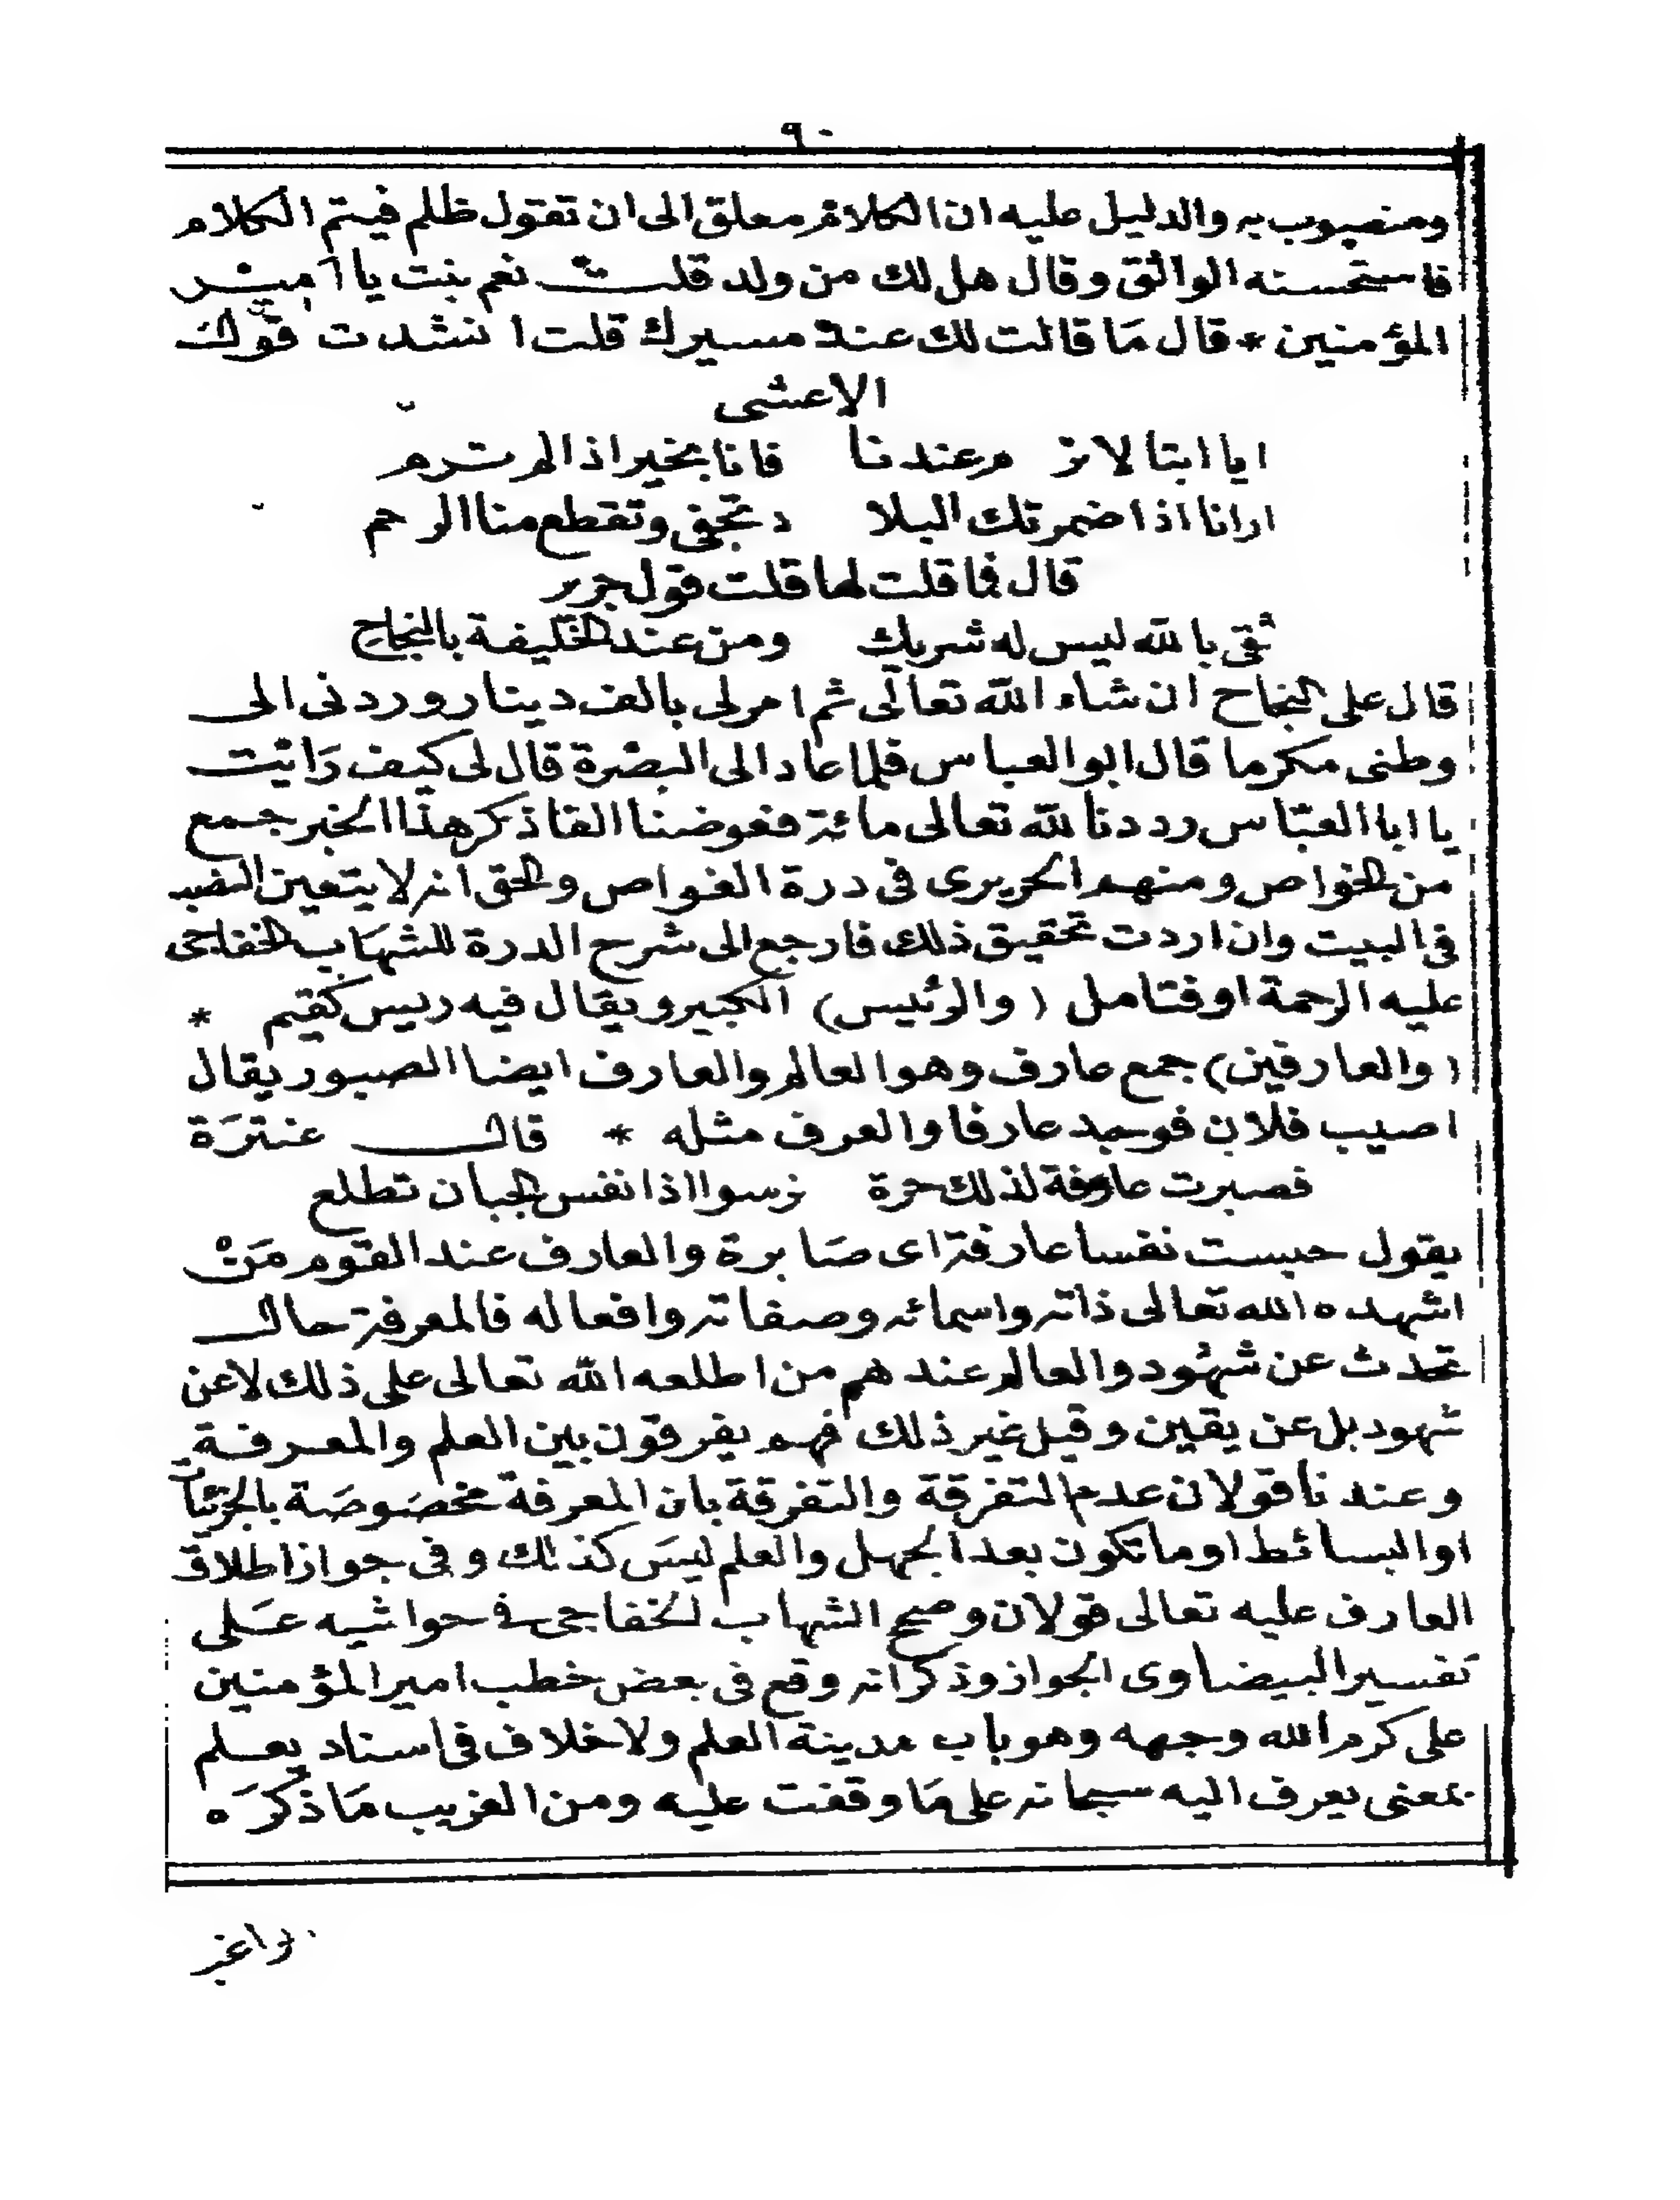 ٩٠
ومنصوب به والدليل عليه ان الكلام معلق الى ان تقول ظلم فيتم الكلام
فاستحسنه الواثق وقال هل لك من ولد قلت نعم بنت يا امير
المؤمنين * قال مَا قالت لك عند مسيرك قلت انشدت قول
الاعشى
ايا ابتا لا ترم عندنا فانا بخير اذا لم ترم
ارانا اذا اضمرتك البلا د تجفى وتقطع منا الرحم
قال فما قلت لها قلت قول جرير
ثقى بالله ليس له شريك ومن عند الخليفة بالنجاح
قال على النجاح ان شاء الله تعالى ثم امر لى بالف دينار وردنى الى
وطنى مكرما قال ابو العباس فلما عاد الى البصرة قال لى كيف رَائيت
يا ابا العبّاس رددنا لله تعالى مائة فعوضنا الفا ذكر هذا الخبر جمع
من الخواص ومنهم الحريرى فى درة الغواص والحق انه لا يتعين النصب
فى البيت وان اردت تحقيق ذلك فارجع الى شرح الدرة للشهَاب الخفاجى
عليه الرحمة او فتامل (والرئيس) الكبير ويقال فيه ريس كقيم *
(والعارفين) جمع عارف وهو العالم والعارف ايضا الصبور يقال
اصيب فلان فوجد عارفا والعرف مثله * قال عنترَة
فصبرت عارفة لذلك حرة ترسو اذا نفس الجبان تطلع
يقول حبست نفسا عارفة اى صَابرة والعارف عند القوم مَنْ
اشهده الله تعالى ذاته واسمائه وصفاته وافعاله فالمعرفة حال
تحدث عن شهُود والعالم عندهم من اطلعه الله تعالى على ذلك لا عن
شهود بل عن يقين وقيل غير ذلك فهم يفرقون بين العلم والمعرفة
وعندنا قولان عدم التفرقة والتفرقة بان المعرفة مخصَوصَة بالجزئيات
او البسائط او ما تكون بعد الجهل والعلم ليسَ كذلك وفى جواز اطلاق
العارف عليه تعالى قولان وصحح الشهاب الخفاجى فى حواشيه عَلى
تفسير البيضاوى الجواز وذكر انه وقع فى بعض خطب امير المؤمنين
على كرم الله وجهه وهو باب مدينة العلم ولا خلاف فى اسناد يعلم
بمعنى يعرف اليه سبحانه على مَا وقفت عليه ومن الغريب مَا ذكرَه